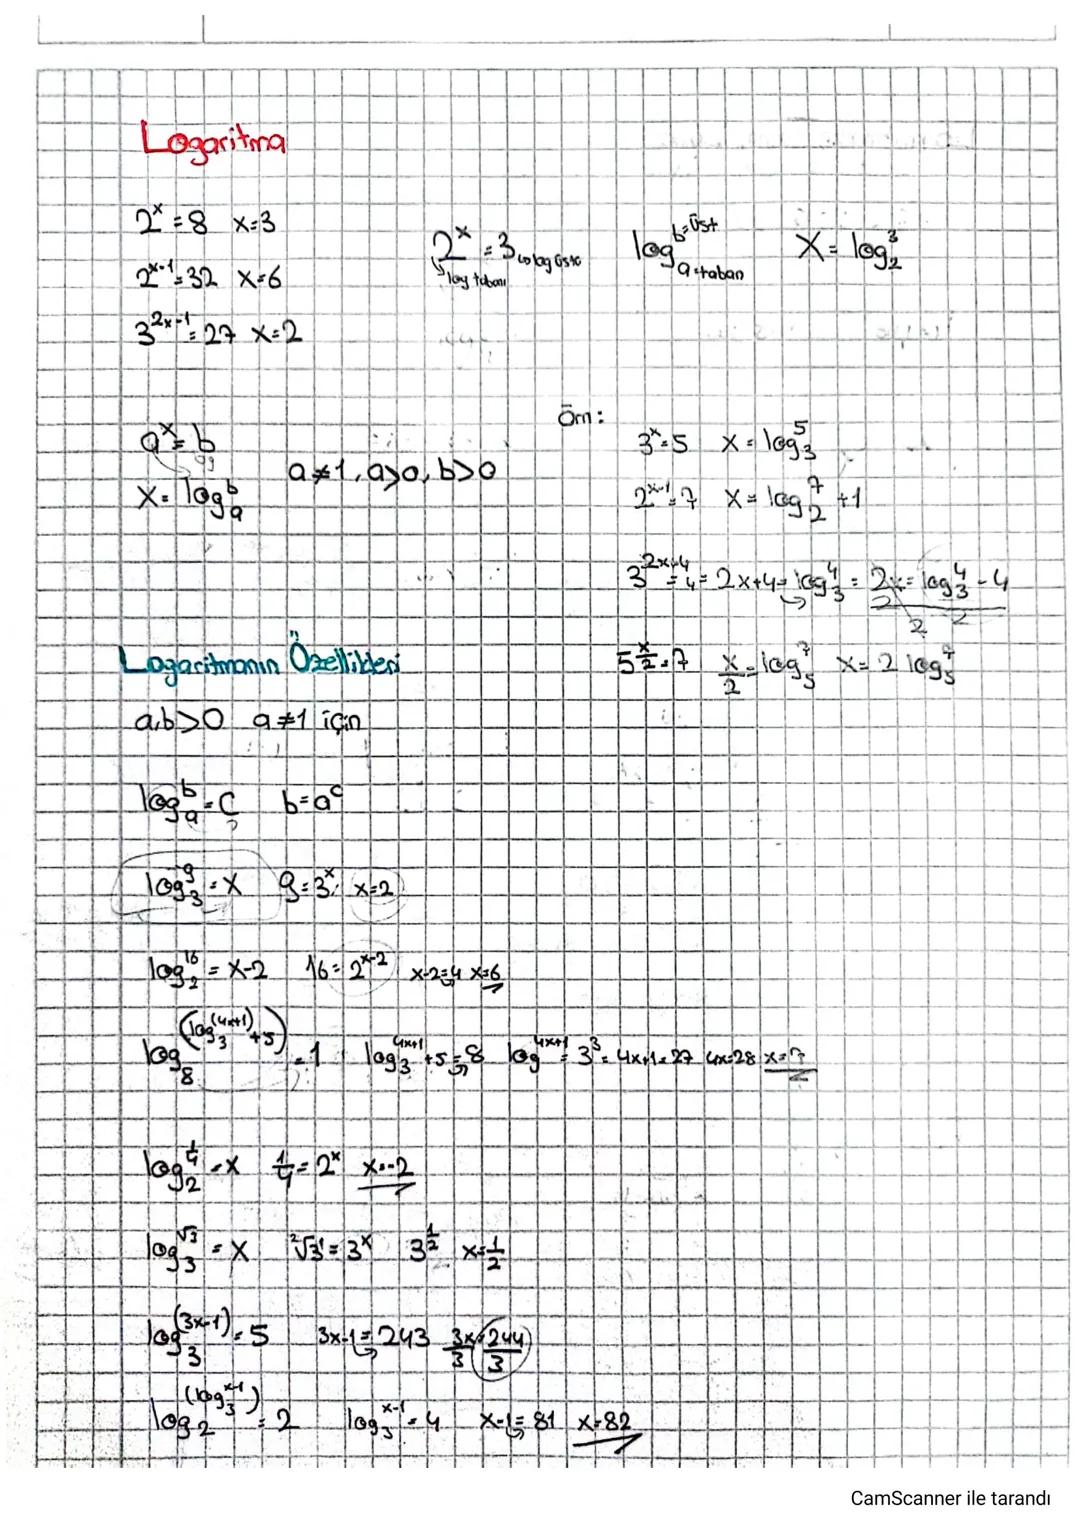 Logaritma
2^x = 8 x=3
2^x = 3 → log üstü
log tabanı
log_a^b b=üst a=taban
x = log_2^3
2^{x-1} = 32 x=6
3^{2x-1} = 27 x=2
Örn:
a^x = b
x = log_a^b
a≠1, a>0, b>0
3^x = 5 x = log_3^5
2^{x-1} = 7 x = log_2^7 + 1
3^{2x+4} = 4 = 2x+4 = log_3^4 = 2x = log_3^4 - 4
2 2 2
5^{x/2} = 7 x/2 = log_5^7 x = 2 log_5^7
Logaritmanın Özellikleri
a,b>0 a≠1 için
log_a^b = c b = a^c
log_3^9 = x 9 = 3^x x=2
log_2^16 = x-2 16 = 2^{x-2} x-2=4 x=6
log_8^(log_3^(4x+1) + 5) = 1 log_3^{4x+1} + 5 = 8 log^{4x+1} = 3^3 = 4x+1 = 27 4x=28 x=7
log_2^{1/4} = x 1/4 = 2^x x=-2
log_3^√3 = x ²√3¹ = 3^x 3^{1/2} x=1/2
log_3^(3x-1) = 5 3x-1 = 243 3x/3 = 244/3
log_2^(log_3^{x-1}) = 2 log_3^{x-1} = 4 x-1 = 81 x=82
CamScanner ile tarandı